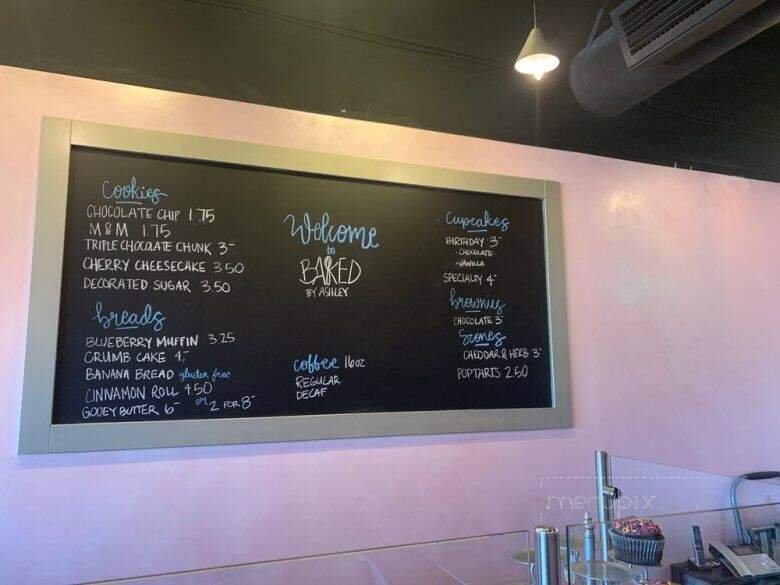 Cookies
CHOCOLATE CHIP 1.75
M & M 1.75
TRIPLE CHOCOLATE CHUNK 3-
CHERRY CHEESECAKE 3.50
DECORATED SUGAR 3.50
breads
BLUEBERRY MUFFIN 3.25
CRUMB CAKE 4-
BANANA BREAD gluten free
CINNAMON ROLL 4.50
GOOEY BUTTER 6- or 2 FOR 8-
Welcome
to
BAKED
BY ASHLEY
coffee 16oz
REGULAR
DECAF
Cupcakes
BIRTHDAY 3-
- CHOCOLATE
- VANILLA
SPECIALTY 4-
brownies
CHOCOLATE 3-
Scones
CHEDDAR & HERB 3-
POPTARTS 2.50
menupix